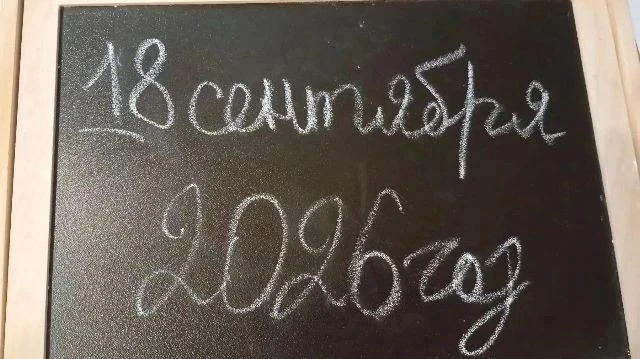 18 сентября
2026 год